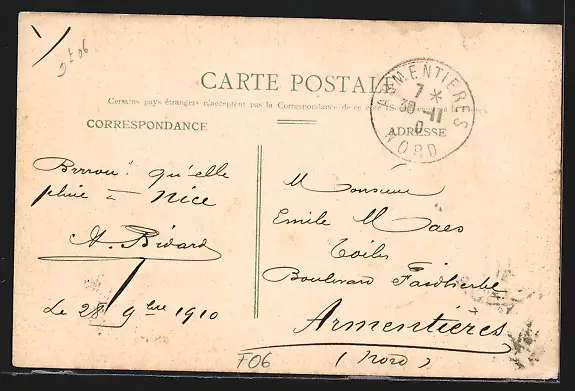 CARTE POSTALE
Certains pays étrangers n'acceptent pas la Correspondance de ce côté
CORRESPONDANCE
ADRESSE
ARMENTIERES
7 *
30 - 11
NORD
Brrrou! qu'elle
pluie à Nice
A. Bivard
Le 28 9bre 1910
Monsieur
Emile Maes
Toiles
Boulevard Faidherbe
Armentières
(Nord)
F06